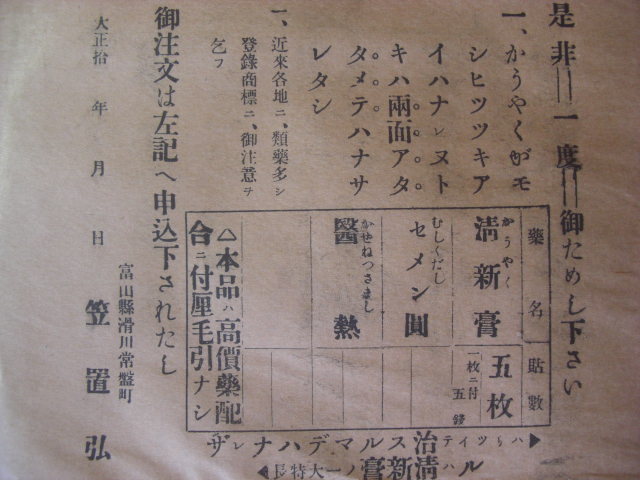 是非一度御ためし下さい
一、かうやくガモ
シヒツツキア
イハナレヌト
キハ兩面アタ
タメテハナサ
レタシ
一、近來各地ニ、類藥多シ
登錄商標ニ、御注意ヲ
乞フ
藥名
貼數
かうやく
淸新膏
五枚
一枚ニ付
五錢
むしくだし
セメン圓
かぜねつさまし
醫熱
△本品ハ高價藥配
合ニ付厘毛引ナシ
治スルマデハナレザ
ルハ淸新膏ノ一大特長
御注文は左記へ申込下されたし
大正拾年月日
富山縣滑川常盤町
笠置弘